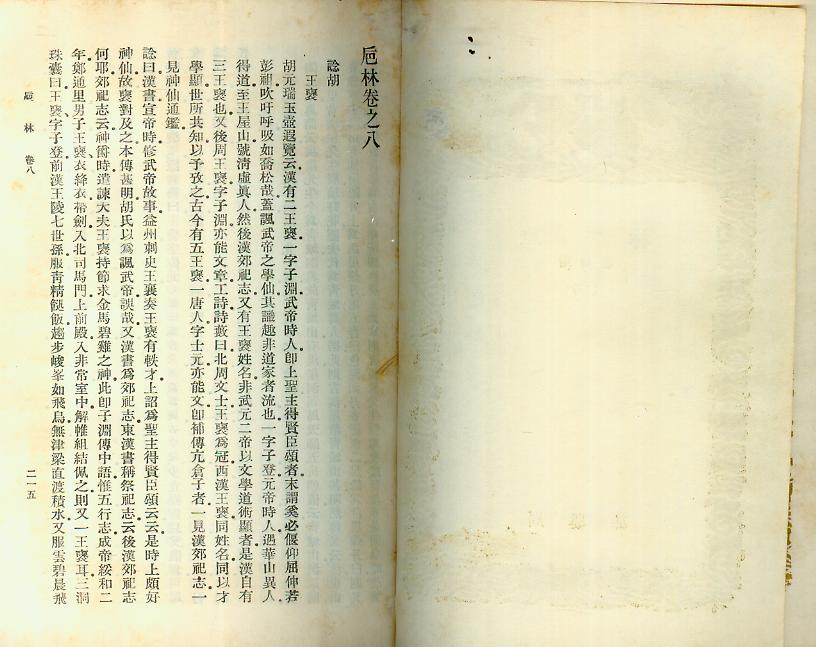 巵林卷之八
諗胡
王褒
胡元瑞玉壺遐覽云漢有二王褒一字子淵武帝時人卽上聖主得賢臣頌者末謂奚必偃仰屈伸若
彭祖吹吁呼吸如喬松哉蓋諷武帝之學仙其識趣非道家者流也一字子登元帝時人遇華山異人
得道至王屋山號淸虛眞人然後漢郊祀志又有王褒姓名非武元二帝以文學道術顯者是漢自有
三王褒也又後周王褒字子淵亦能文章工詩詩藪曰北周文士王褒爲冠西漢王褒同姓名同以才
學顯世所共知以予攷之古今有五王褒一唐人字士元亦能文卽補傳亢倉子者一見漢郊祀志一
見神仙通鑑
諗曰漢書宣帝時修武帝故事益州刺史王襄奏王褒有軼才上詔爲聖主得賢臣頌云云是時上頗好
神仙故褒對及之本傳甚明胡氏以爲諷武帝誤哉又漢書爲郊祀志東漢書稱祭祀志云後漢郊祀志
何耶郊祀志云神爵時遣諫大夫王褒持節求金馬碧雞之神此卽子淵傳中語惟五行志成帝綏和二
年鄭通里男子王褒衣絳衣帶劍入北司馬門上前殿入非常室中解帷組結佩之則又一王褒耳三洞
珠囊曰王褒字子登前漢王陵七世孫服靑精䭀飯趨步峻峯如飛鳥無津梁直渡積水又服雲碧晨飛
巵林 卷八 二一五